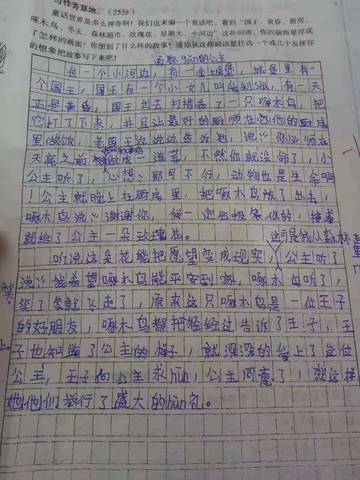 习作芳草地。(25分)
童话世界是多么神奇啊！我们也来编一个童话吧。看到“国王、黄昏、厨房、
啄木鸟、冬天、森林超市、玫瑰花、星期天、小河边”这些词语，你的脑海里浮现
了怎样的画面？你想到了什么样的故事？请你从这些词语里任选一个或几个发挥你
的想象把故事写下来吧！
的公主
在一个小河边，有一座城堡，城堡里有一
个国王，国王有一个小女儿叫
有一天
正是黄昏，国王出去打猎
了一只啄木鸟，把
它打了下来，并且让最好的厨师在
里做饭，老国王边说边告诉他，说：“你必须在
天亮之前
不然你就没命了，小
公主听了，心想：那可不行，动物也是生命啊
！公主就晚上在厨房里，把啄木鸟放了出去，
啄木鸟说：“谢谢你，我一定会报答你的，接着
就给了公主一朵玫瑰花。
这可是我从森林
听说这朵花能把愿望变成现实，公主听了
说：“我希望啄木鸟能平安到家，啄木鸟听了，
笑了笑就飞走了，原来这只啄木鸟是一位王子
的好朋友，啄木鸟都把经过告诉了王子，王
子也知道了公主的样子，就深深的爱上了这位
公主，王子向公主求hūn，公主同意了，就这样
她他们举行了盛大的hūn礼。